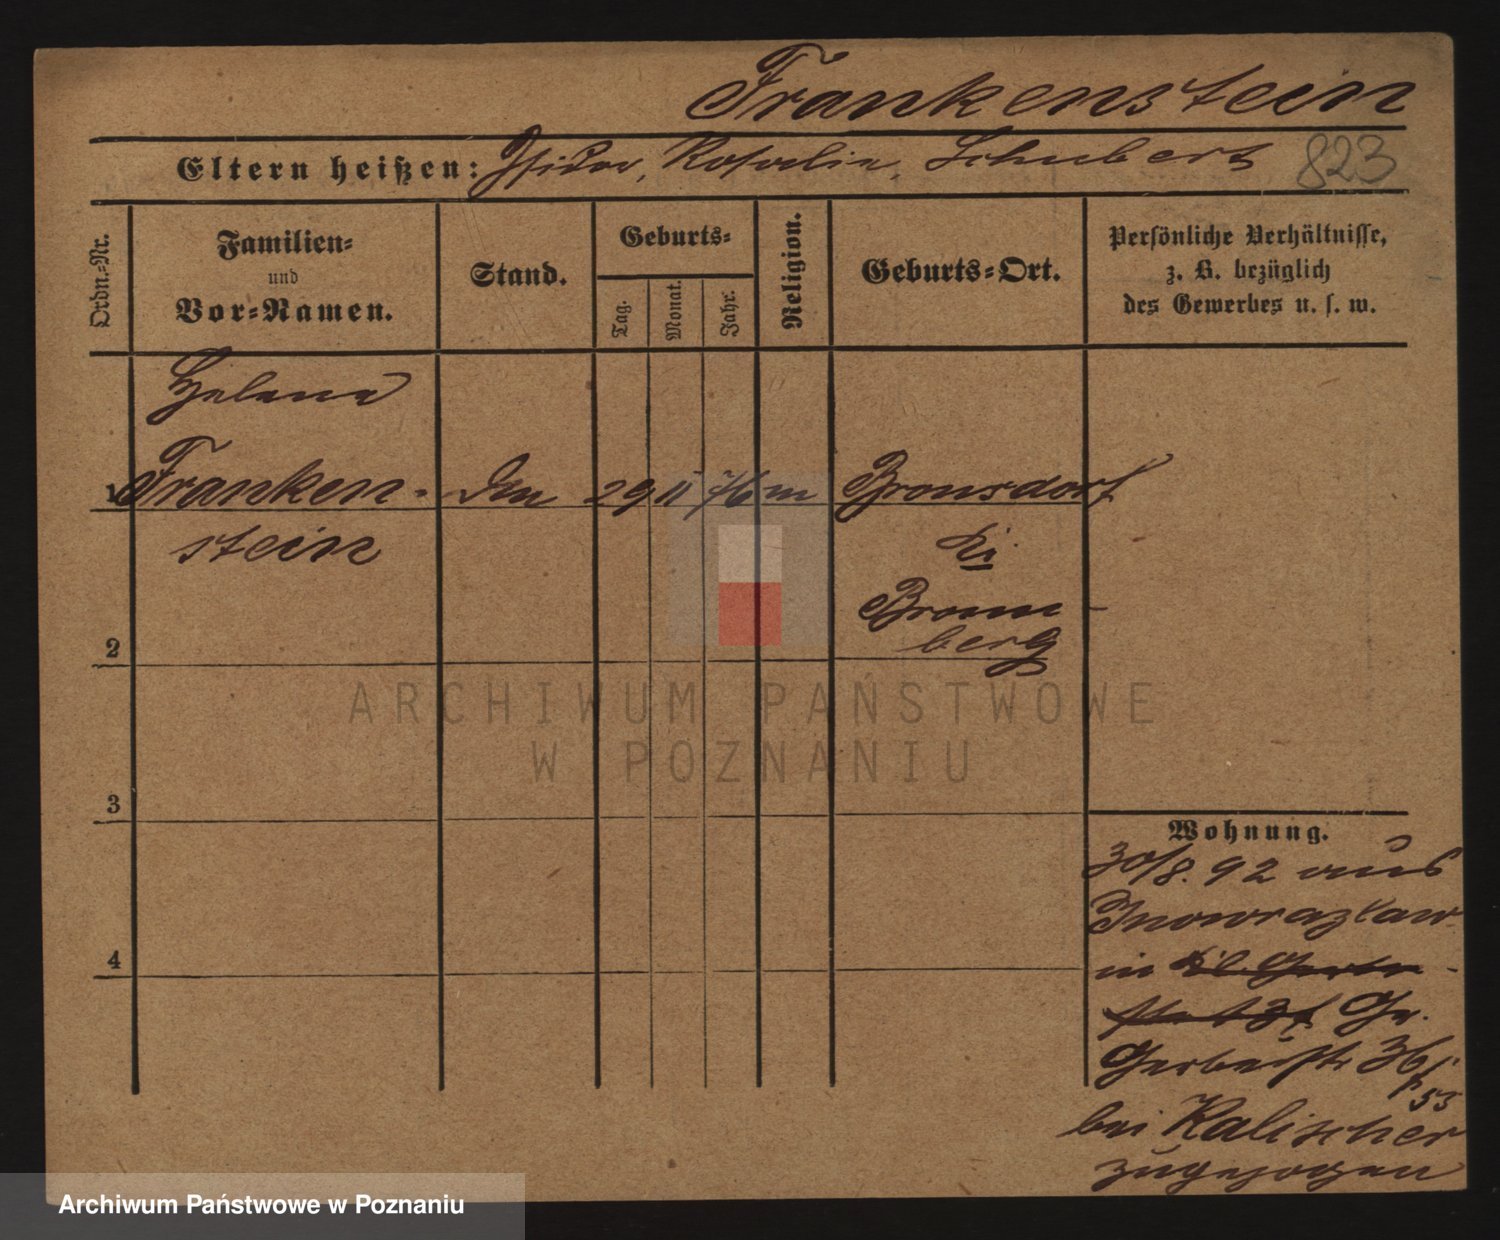 Frankenstein
Eltern heißen: Isidor, Rosalie, Schubert 823
Ordn.=Nr.
Familien=
und
Vor=Namen.
Stand.
Geburts=
Tag.
Monat.
Jahr.
Religion.
Geburts=Ort.
Persönliche Verhältnisse,
z. B. bezüglich
des Gewerbes u. s. w.
Helene
1 Franken- 29 11 76 m Bronsdorf
stein
Kr.
Brom-
berg
2
3
4
ARCHIWUM PAŃSTWOWE
W POZNANIU
Wohnung.
30/8. 92 aus
Inowrazlaw
in Kl. Gerber-
Gr.
Gerberstr 36/
53
bei Kalischer
zugezogen
Archiwum Państwowe w Poznaniu